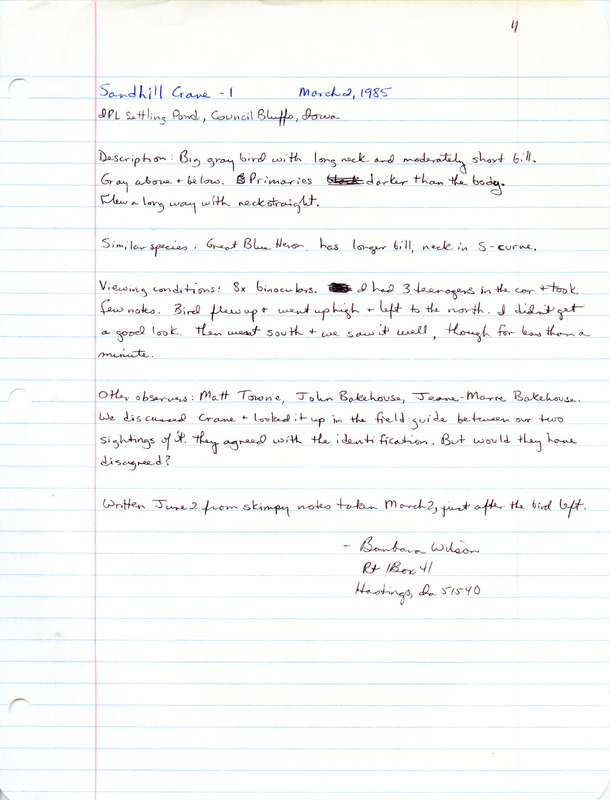 4
Sandhill Crane - 1 March 2, 1985
IPL Settling Pond, Council Bluffs, Iowa
Description: Big gray bird with long neck and moderately short bill.
Gray above + below. Primaries darker than the body.
Flew a long way with neck straight.
Similar species: Great Blue Heron has longer bill, neck in S-curve.
Viewing conditions: 8x binoculars. I had 3 teenagers in the car + took
few notes. Bird flew up + went up high + left to the north. I didn't get
a good look. Then went south + we saw it well, though for less than a
minute.
Other observers: Matt Towne, John Bakehouse, Jeane-Marie Bakehouse.
We discussed Crane + looked it up in the field guide between our two
sightings of it. They agreed with the identification. But would they have
disagreed?
Written June 2 from skimpy notes taken March 2, just after the bird left.
- Barbara Wilson
Rt 1 Box 41
Hastings, Ia 51540